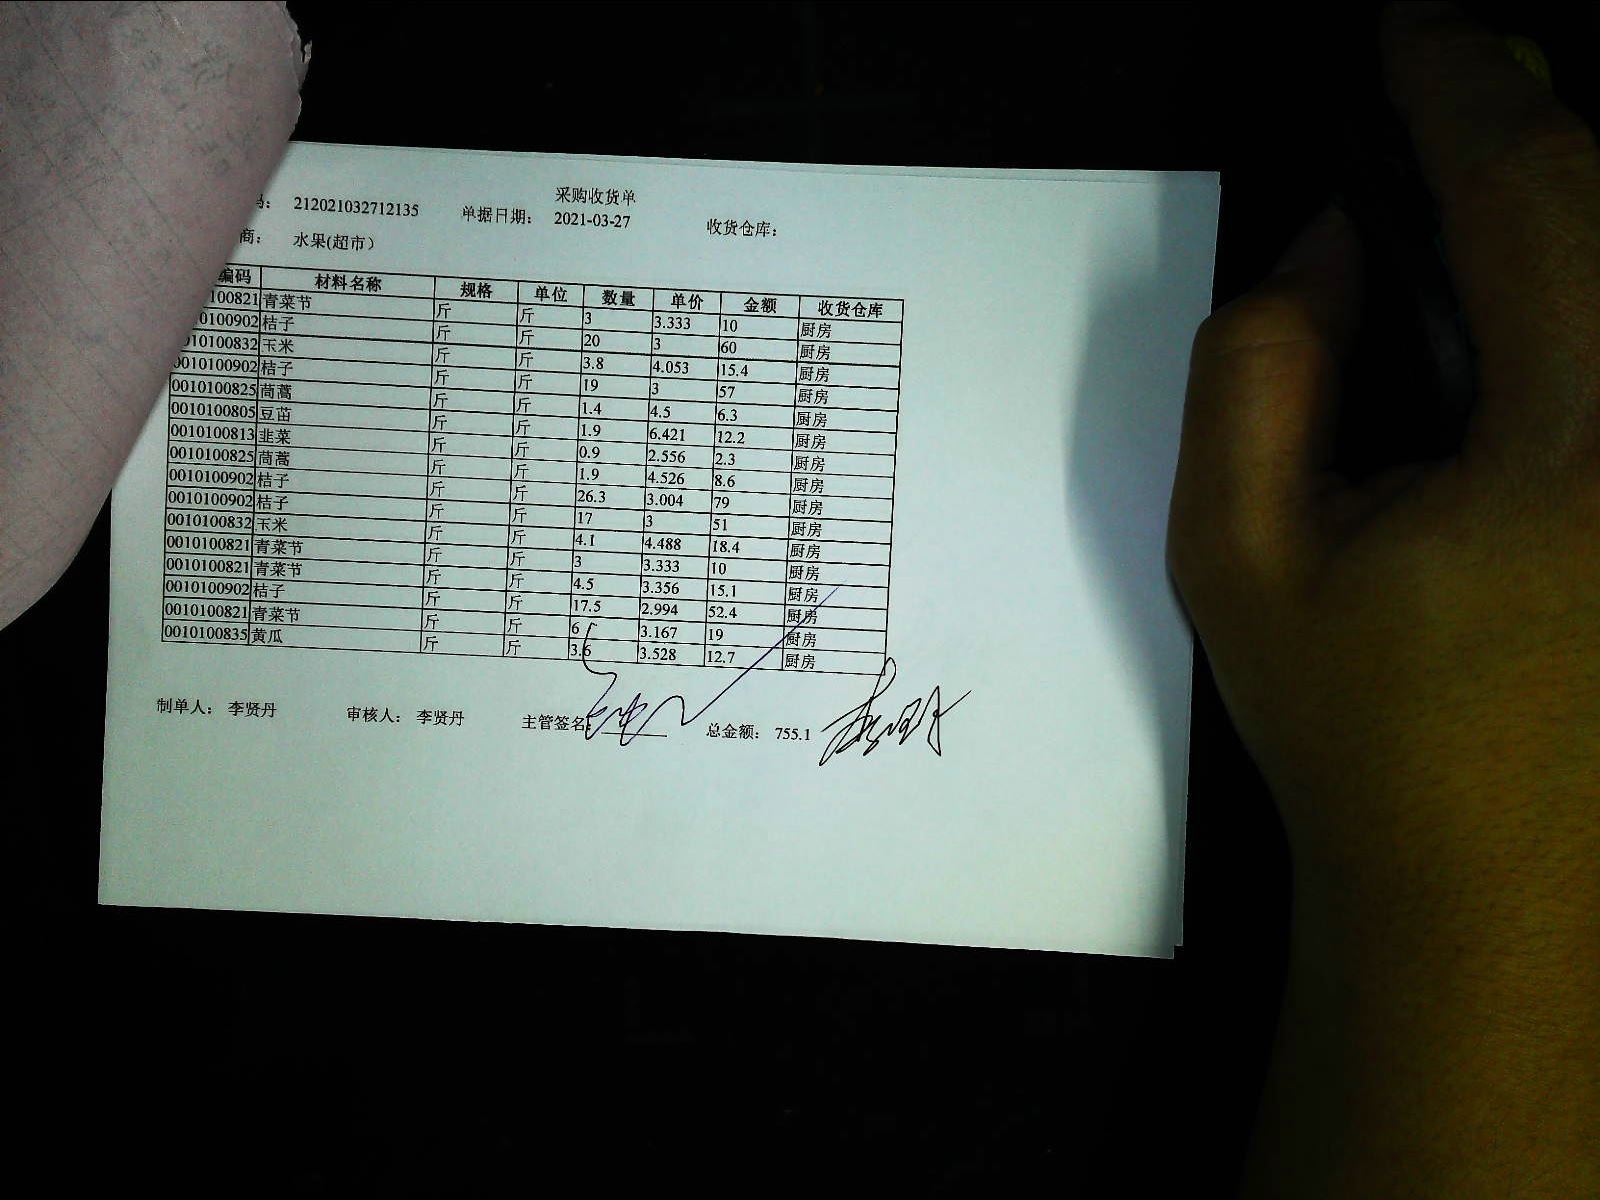 采购收货单
码： 212021032712135 单据日期： 2021-03-27 收货仓库：
商： 水果(超市)
编码 材料名称 规格 单位 数量 单价 金额 收货仓库
100821 青菜节 斤 斤 3 3.333 10 厨房
0100902 桔子 斤 斤 20 3 60 厨房
010100832 玉米 斤 斤 3.8 4.053 15.4 厨房
0010100902 桔子 斤 斤 19 3 57 厨房
0010100825 茼蒿 斤 斤 1.4 4.5 6.3 厨房
0010100805 豆苗 斤 斤 1.9 6.421 12.2 厨房
0010100813 韭菜 斤 斤 0.9 2.556 2.3 厨房
0010100825 茼蒿 斤 斤 1.9 4.526 8.6 厨房
0010100902 桔子 斤 斤 26.3 3.004 79 厨房
0010100902 桔子 斤 斤 17 3 51 厨房
0010100832 玉米 斤 斤 4.1 4.488 18.4 厨房
0010100821 青菜节 斤 斤 3 3.333 10 厨房
0010100821 青菜节 斤 斤 4.5 3.356 15.1 厨房
0010100902 桔子 斤 斤 17.5 2.994 52.4 厨房
0010100821 青菜节 斤 斤 6 3.167 19 厨房
0010100835 黄瓜 斤 斤 3.6 3.528 12.7 厨房
制单人： 李贤丹 审核人： 李贤丹 主管签名： 总金额： 755.1